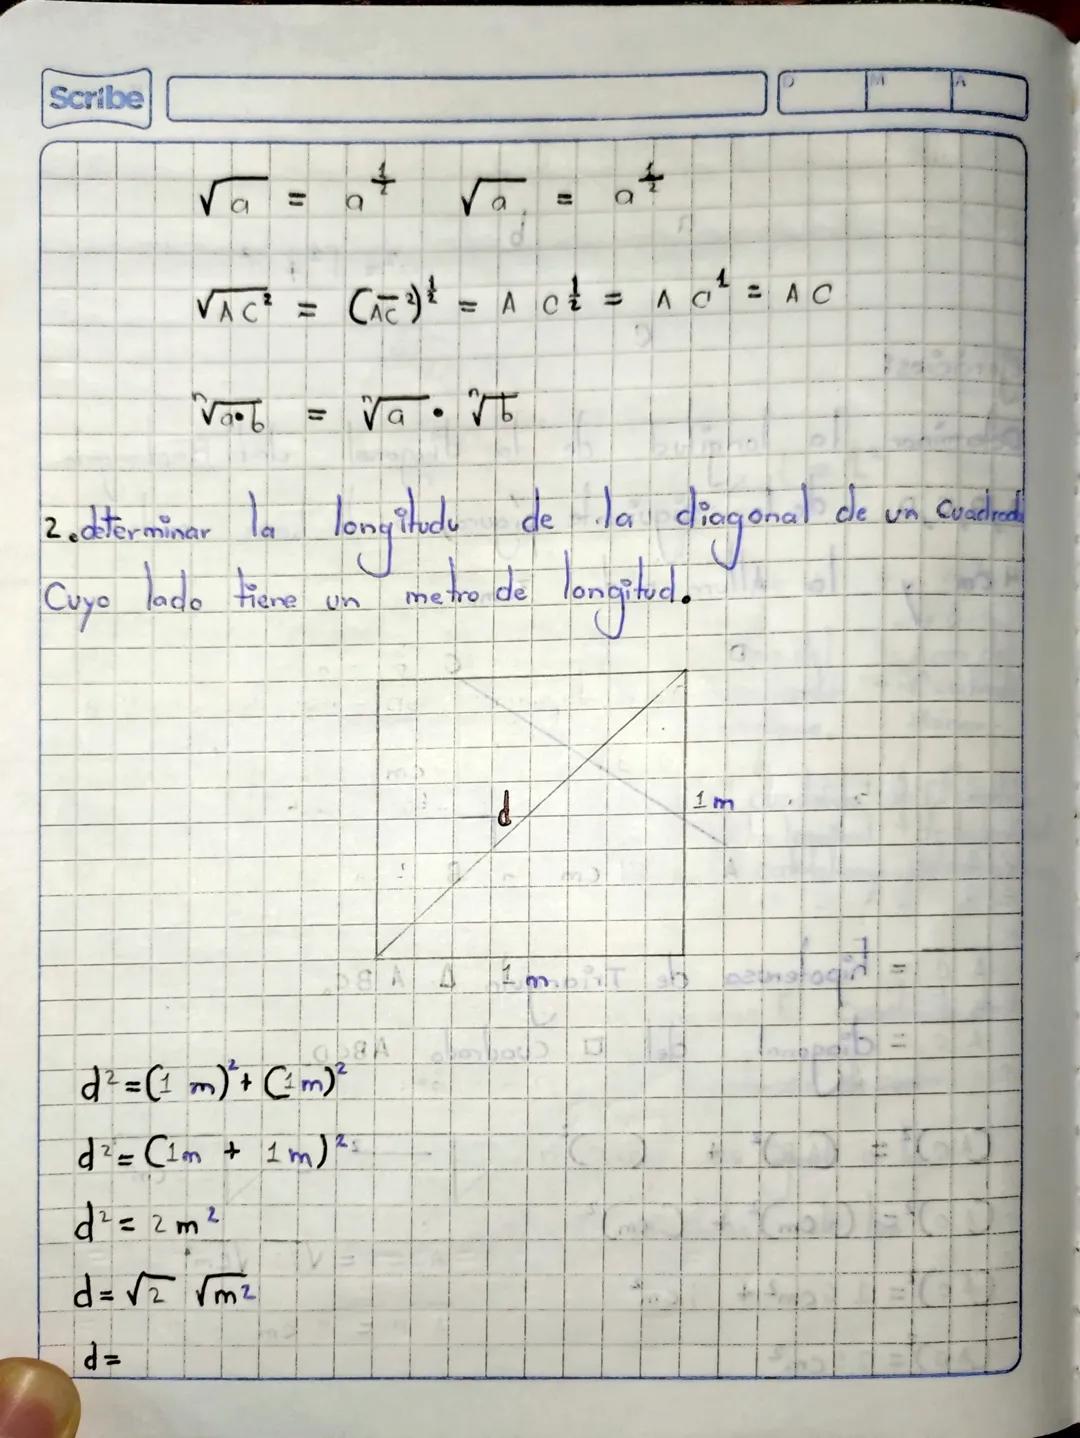 Scribe
D M A
√a = a^1/2 √a = a^1/2
√AC² = (AC²)^1/2 = A C^1/2 = A C^1 = A C
ⁿ√a•b = ⁿ√a • ⁿ√b
2. determinar la longitudu de la diagonal de un Cuadrado
Cuyo lado tiene un metro de longitud.
d
1 m
1 m
d² = (1 m)² + (1m)²
d² = (1m + 1m)²
d² = 2 m²
d = √2 √m²
d =